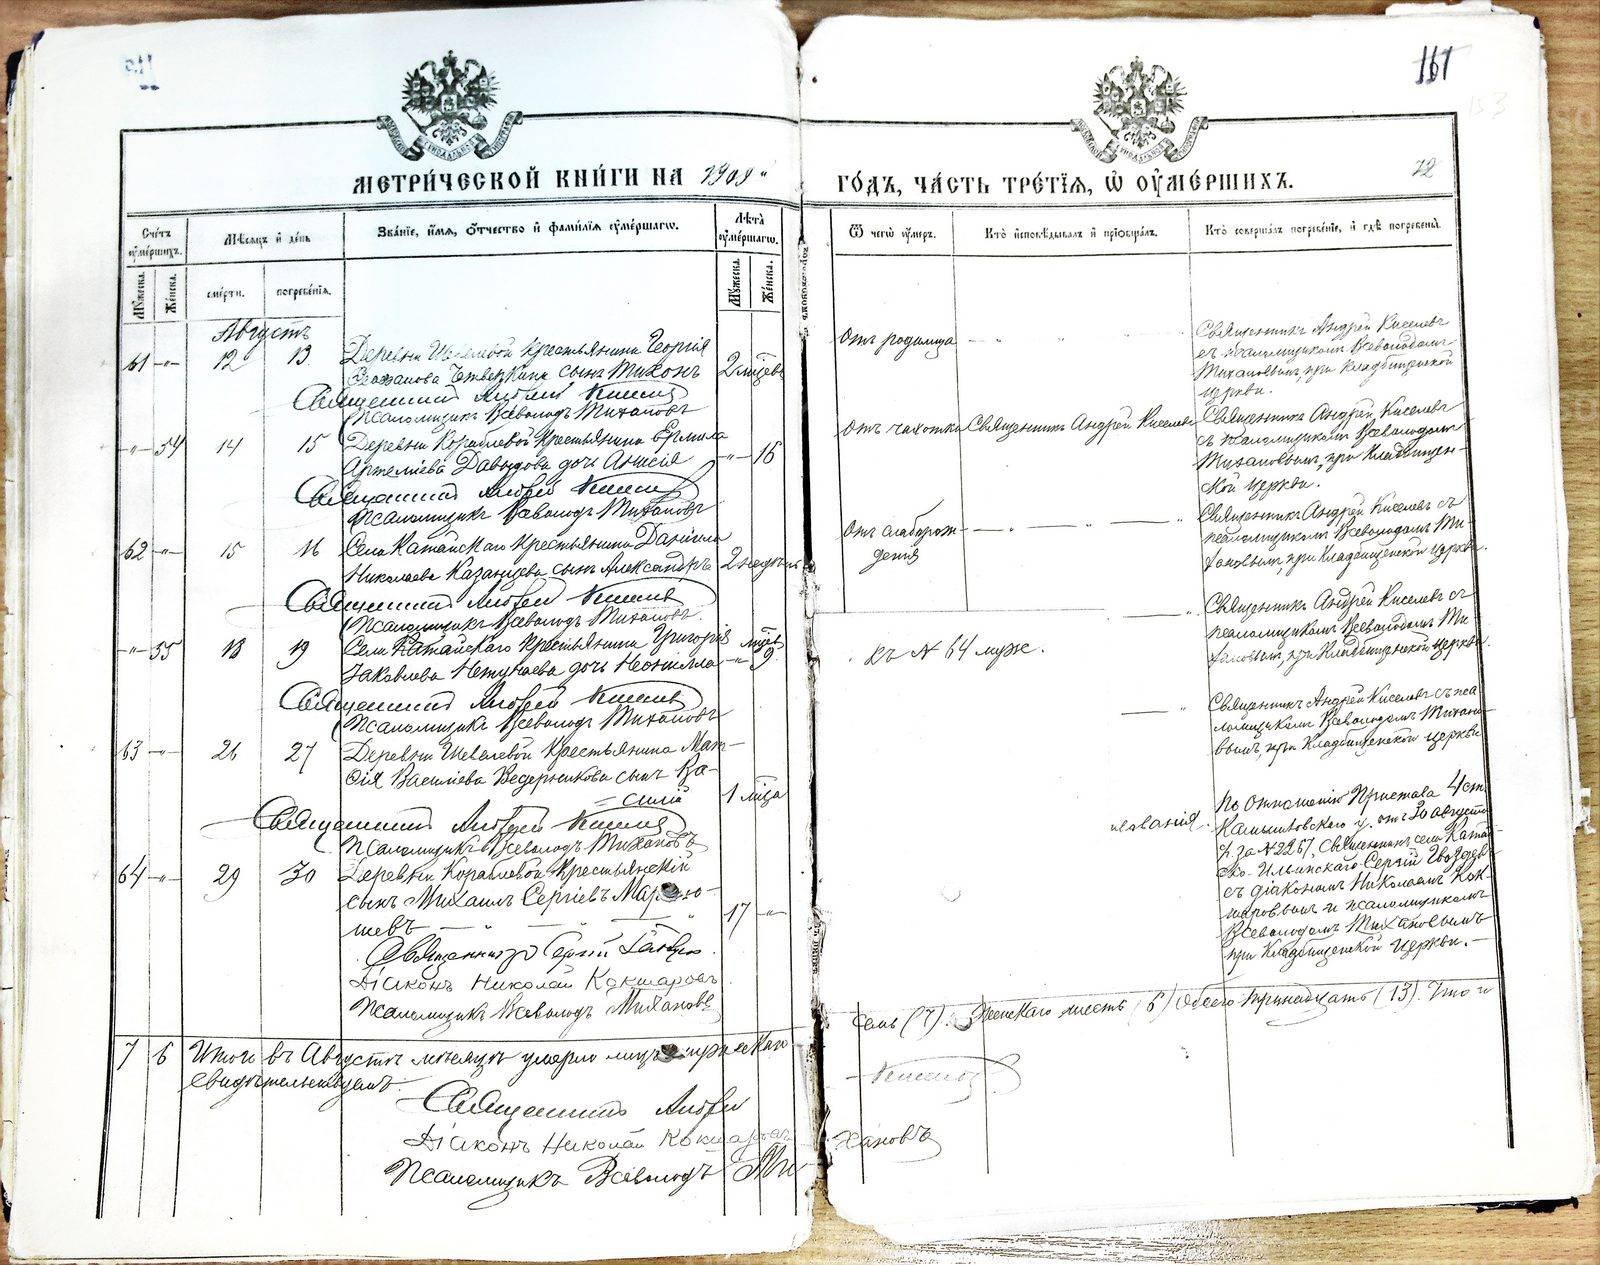 161
72
МЕТРИ́ЧЕСКОЙ КНИ́ГИ НА 1909
ГО́ДЪ, ЧА́СТЬ ТРЕ́ТІѦ, Ѡ ОУ҆МЕ́РШИХЪ.
Счетъ оумершихъ.
Мѣсяцъ и день
Званіе, имя, отчество и фамилія оумершагѡ.
Лѣта оумершагѡ.
Ѿ чегѡ оумеръ.
Кто исповѣдывалъ и пріобщалъ.
Кто совершалъ погребеніе, и гдѣ погребены.
Мужеска.
Женска.
смерти.
погребенія.
Мужеска.
Женска.
Августъ
61 -"- 12 13 Деревни Шевелевой крестьянина Георгія
Четверкина сынъ Тихонъ 2 мѣсяц.
Священникъ Андрей Киселев
Псаломщикъ Всеволодъ Тихановъ
Отъ родимца
Священникъ Андрей Киселевъ
съ псаломщикомъ Всеволодомъ
Тихановымъ, при кладбищенской
церкви.
-"- 54 14 15 Деревни Кораблевой крестьянина Ермила
Артеміева Давыдова дочь Анисія -"- 16
Священникъ Андрей Киселев
Псаломщикъ Всеволодъ Тихановъ
Отъ чахотки Священникъ Андрей Киселевъ
Священникъ Андрей Киселевъ
съ псаломщикомъ Всеволодомъ
Тихановымъ, при кладбищен-
ской церкви.
62 -"- 15 16 Села Катайскаго крестьянина Даніила
Николаева Казанцева сынъ Александръ 2 недѣли
Священникъ Андрей Киселев
Псаломщикъ Всеволодъ Тихановъ
Отъ слаборож-
денія
Священникъ Андрей Киселевъ съ
псаломщикомъ Всеволодомъ Ти-
хановымъ, при кладбищенской церкви.
-"- 55 18 19 Села Катайскаго крестьянина Григорія
Іаковлева дочь Неонилла -"- 9
Священникъ Андрей Киселев
Псаломщикъ Всеволодъ Тихановъ
Къ № 64 муж.
Священникъ Андрей Киселевъ съ
псаломщикомъ Всеволодомъ Ти-
хановымъ, при кладбищенской церкви.
63 -"- 26 27 Деревни Шевелевой крестьянина
Василіева Ведерникова сынъ Ва-
= силій 1 мѣсяца
Священникъ Андрей Киселев
Псаломщикъ Всеволодъ Тихановъ
Священникъ Андрей Киселевъ съ пса-
ломщикомъ Всеволодомъ Тихано-
вымъ, при кладбищенской церкви
64 -"- 29 30 Деревни Кораблевой крестьянскій
сынъ Михаилъ Сергіевъ
шевъ 17 -"-
Священникъ Сергій
Діаконъ Николай Кокшаровъ
Псаломщикъ Всеволодъ Тихановъ
По отношенію Пристава 4 ст.
Камышловскаго у. отъ 30 августа
за № 2267, священникъ села Катай-
ско-Ильинскаго Сергій Гвоздевъ
съ діакономъ Николаемъ Кок-
шаровымъ и псаломщикомъ
Всеволодомъ Тихановымъ
при кладбищенской церкви.
7 6 Итого въ Августѣ мѣсяцѣ умерло лицъ мужескаго
семь (7). Женскаго шесть (6) Обоего тринадцать (13). Что и
свидѣтельствуемъ:
Священникъ Андрей Киселев
Діаконъ Николай Кокшаровъ
Псаломщикъ Всеволодъ Тихановъ